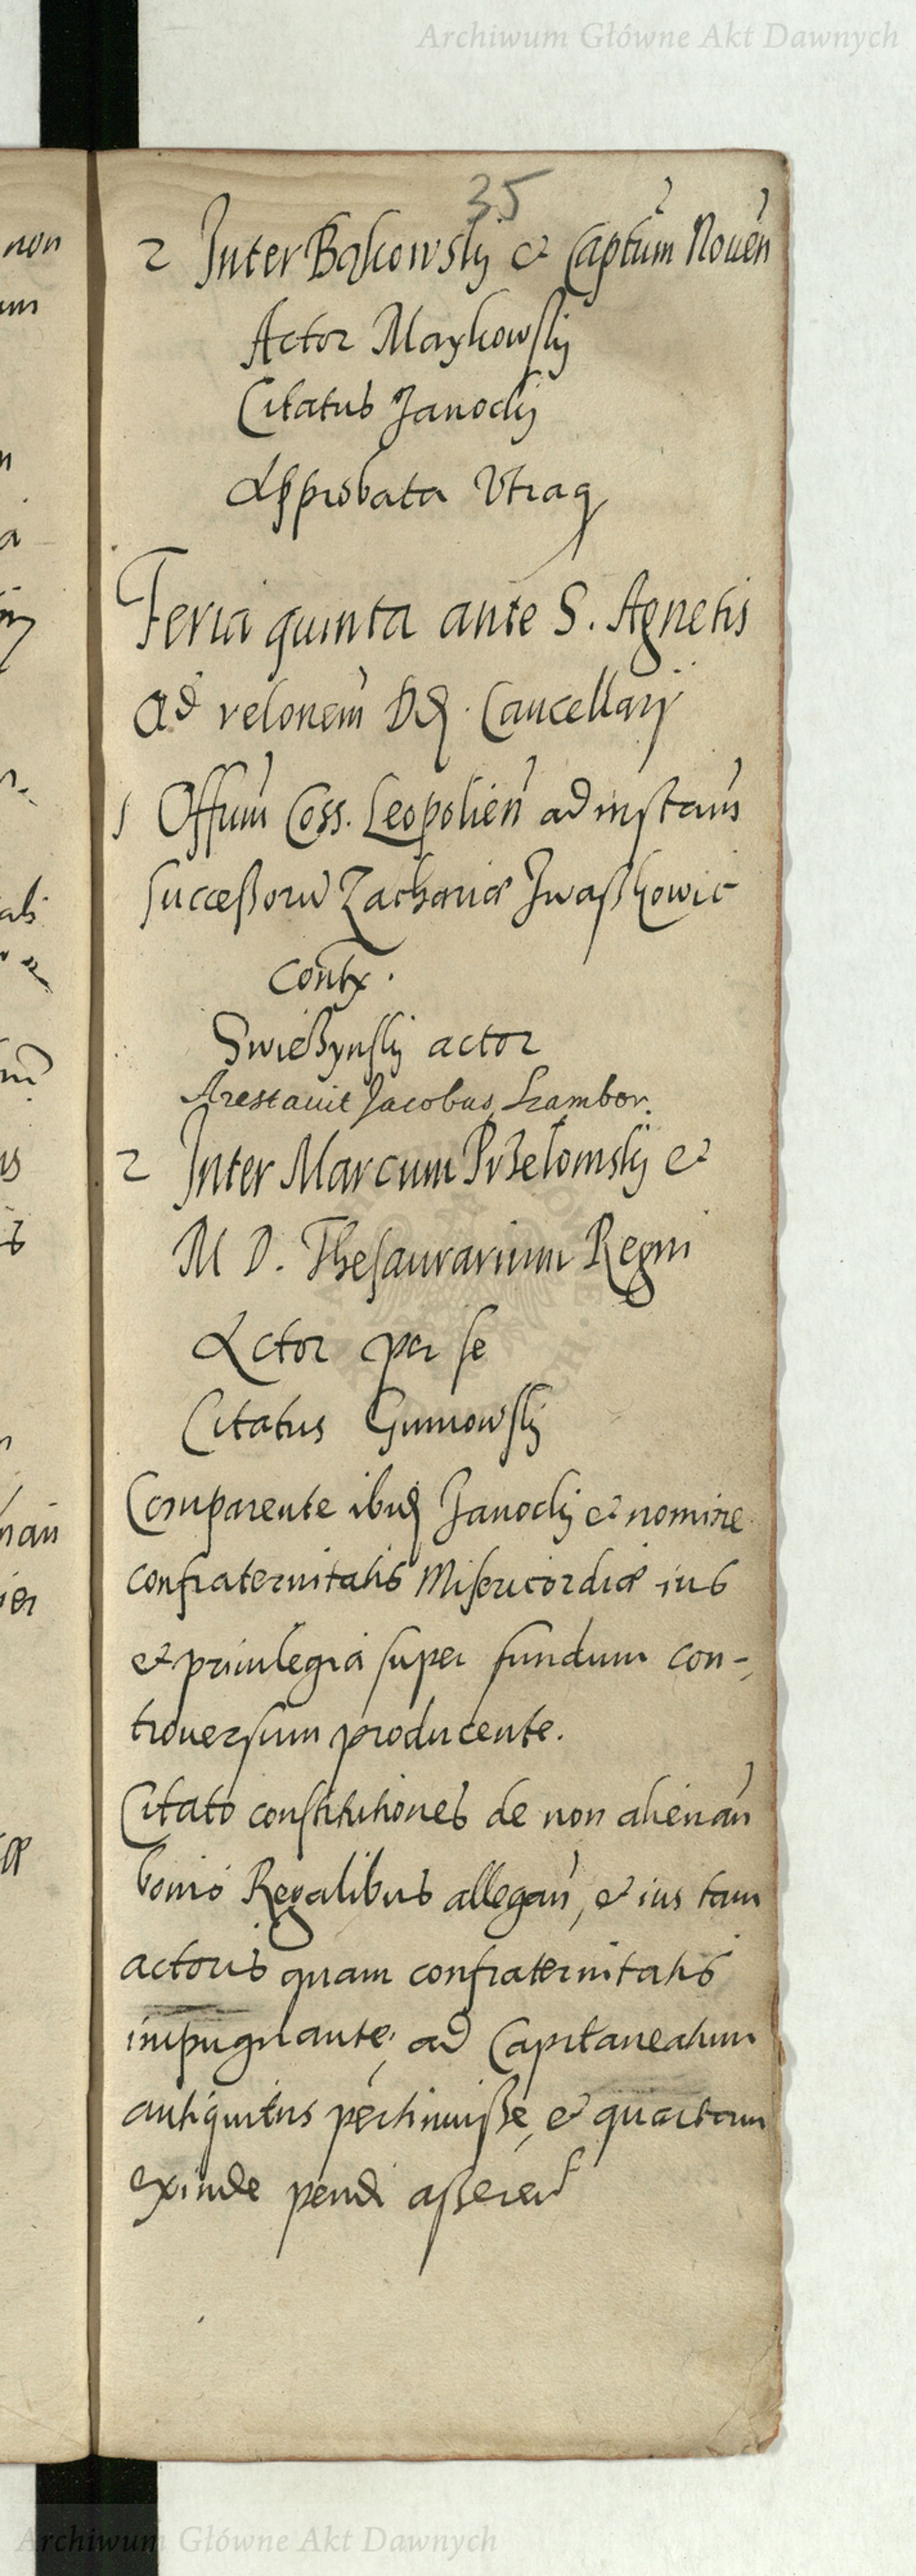 Archiwum Główne Akt Dawnych
35
2 Inter Bąkowsky et Captum Noven
Actor Maykowsky
Citatus Janocky
Approbata Utraq
Feria quinta ante S. Agnetis
Ad relonem Dni Cancellarij
1 Offium Coss. Leopolien ad instan
Successoru Zachariæ Iwaszkowic
Contr.
Swieszynsky actor
Arestavit Jacobus Szambor.
2 Inter Marcum Przełomsky et
M D. Thesaurarium Regni
Actor per se
Citatus Gumowsky
Comparente ibid Janocky et nomine
confraternitatis Misericordiæ ius
et privilegia super fundum con-
troversum producente.
Citato constitutiones de non alienan
bonis Regalibus allegan, et ius tam
actoris quam confraternitatis
impugnante, ad Capitaneatum
antiquitus pertinuisse, et quartam
exinde pendi asseren
Archiwum Główne Akt Dawnych